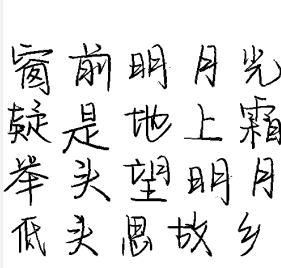 窗前明月光
疑是地上霜
举头望明月
低头思故乡